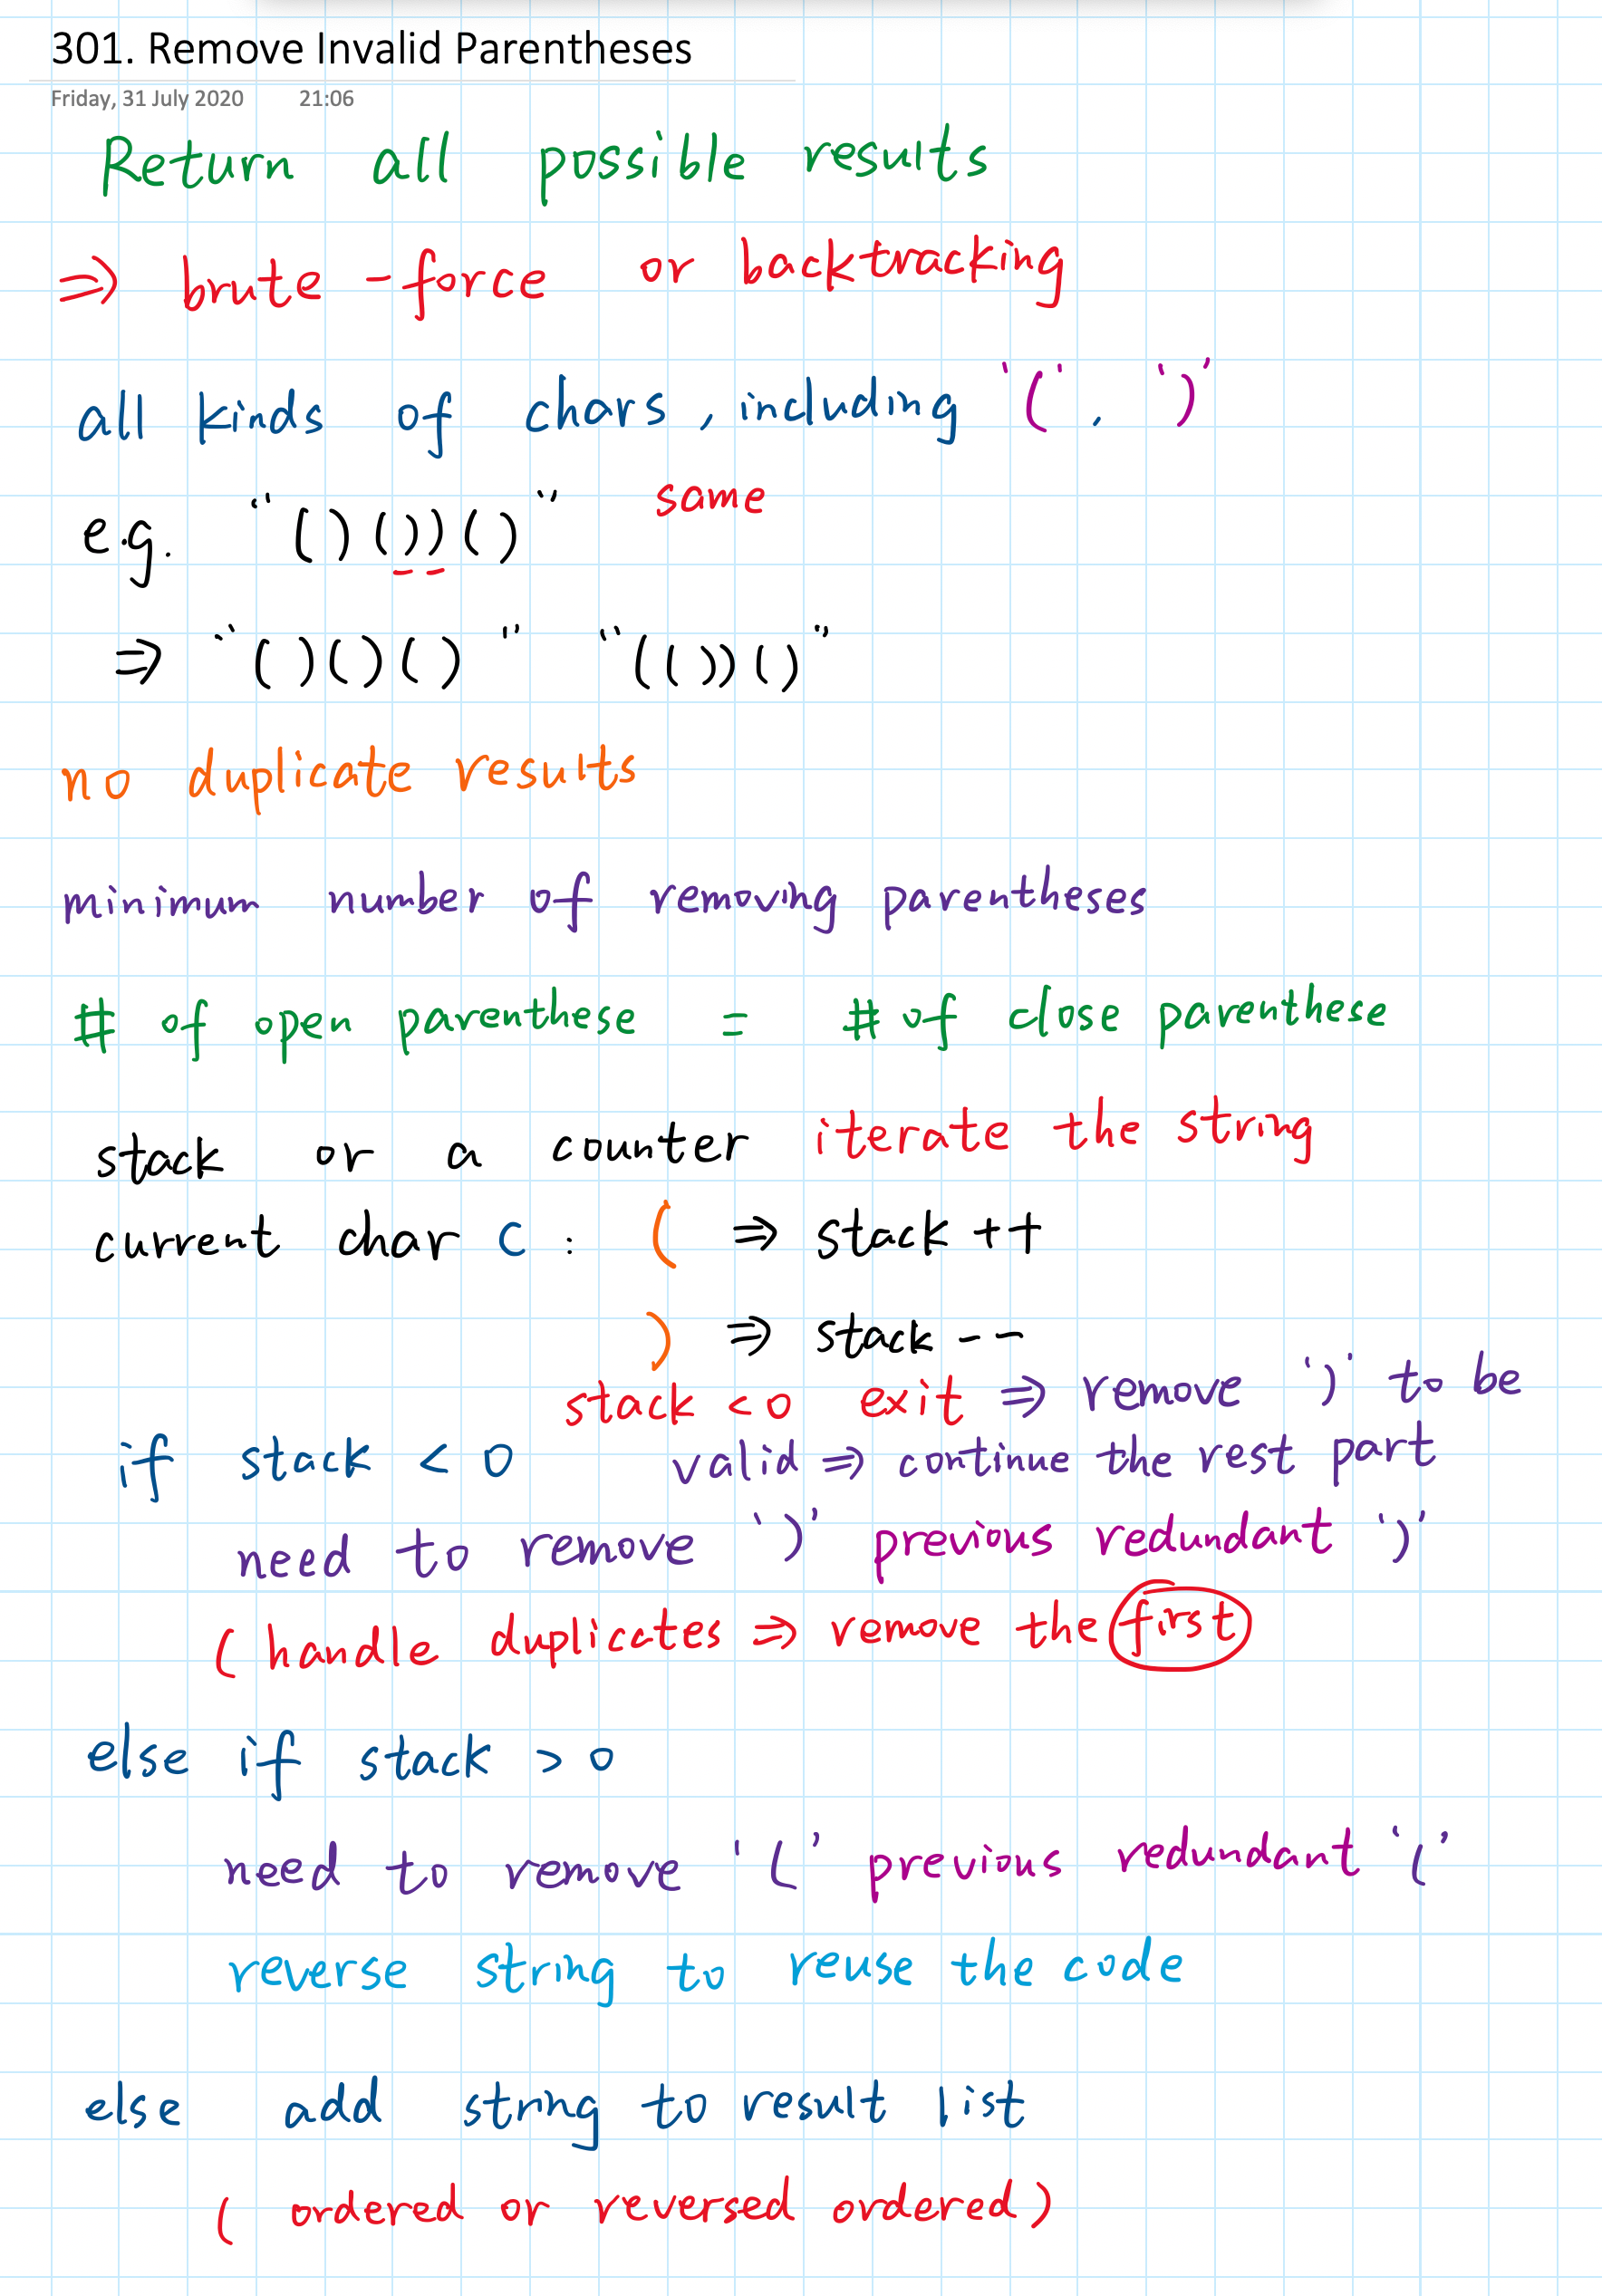 301. Remove Invalid Parentheses
Friday, 31 July 2020 21:06
Return all possible results
⇒ brute-force or backtracking
all kinds of chars, including '(', ')'
e.g. "()())()" same
⇒ "()()()" "(())()"
no duplicate results
minimum number of removing parentheses
# of open parenthese = # of close parenthese
stack or a counter iterate the string
current char c : ( ⇒ stack ++
) ⇒ stack --
stack <0 exit ⇒ remove ')' to be
if stack < 0 valid ⇒ continue the rest part
need to remove ')' previous redundant ')'
( handle duplicates ⇒ remove the first
else if stack > 0
need to remove '(' previous redundant '('
reverse string to reuse the code
else add string to result list
( ordered or reversed ordered)